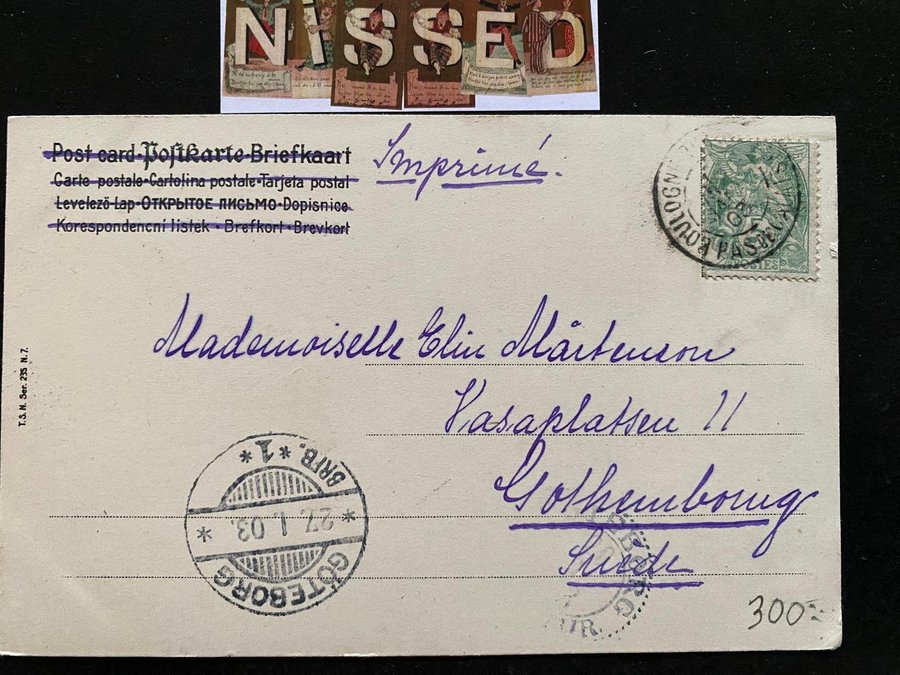 NISSED
Post card-Postkarte-Briefkaart
Carte postale-Cartolina postale-Tarjeta postal
Levelező-Lap-ОТКРЫТОЕ ПИСЬМО-Dopisnice
Korespondencní listek - Brefkort - Brevkort
Imprimé.
BOULOGNE
PAS DE CA
POSTES
Mademoiselle Elin Mårtenson
Vasaplatsen 11
Gothembourg
Suède
T.S.N. Ser. 235 N. 7.
BRFB. *1*
* 27. 1. 03. *
GÖTEBORG
300:-